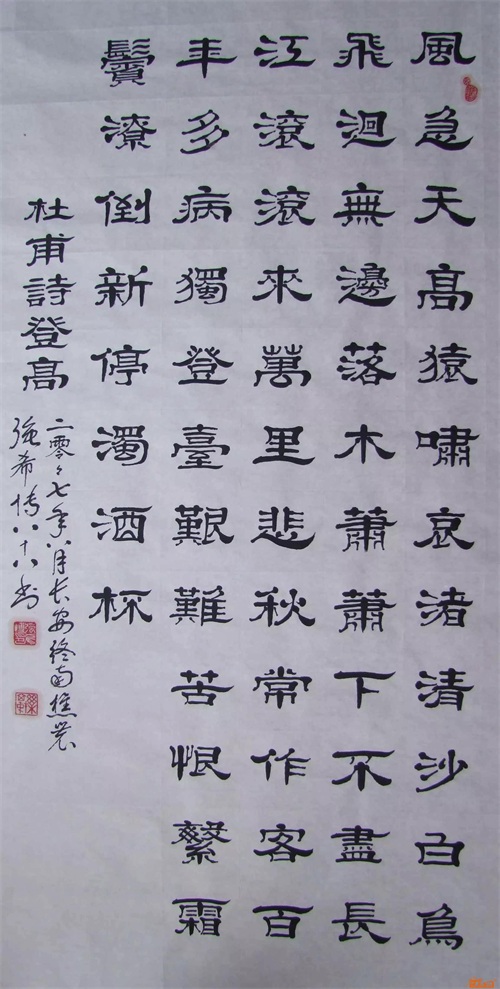 風急天高猿嘯哀渚清沙白鳥
飛迴無邊落木蕭蕭下不盡長
江滾滾來萬里悲秋常作客百
年多病獨登臺艱難苦恨繁霜
鬢潦倒新停濁酒杯
杜甫詩登高
二零々七年八月长安终南樵
強希博八十八书